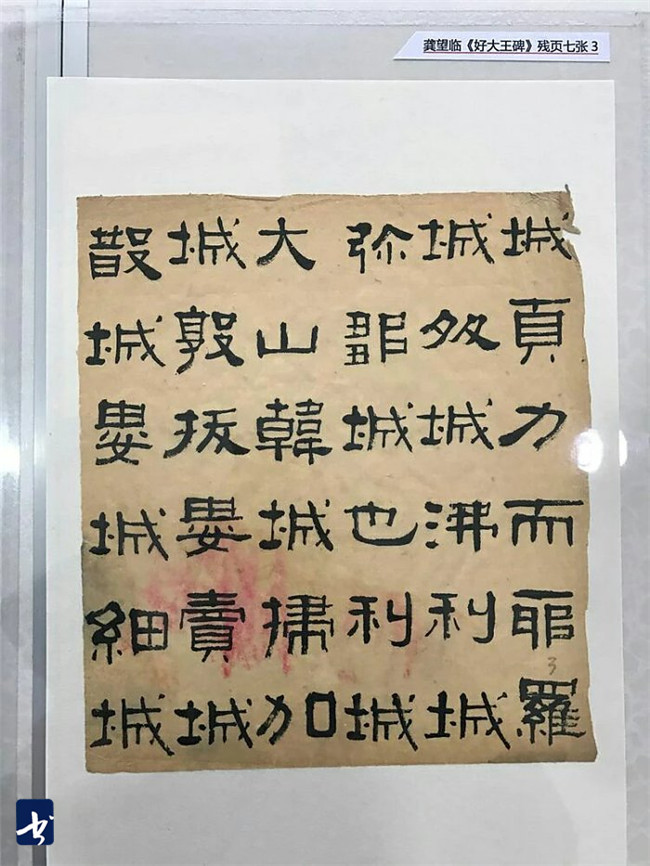 龚望临《好大王碑》残页七张 3
城頁力而耶羅
城城沸利城
弥城也利城
大山韓城掃加
城敦拔婁賣城
散城婁城細城
3